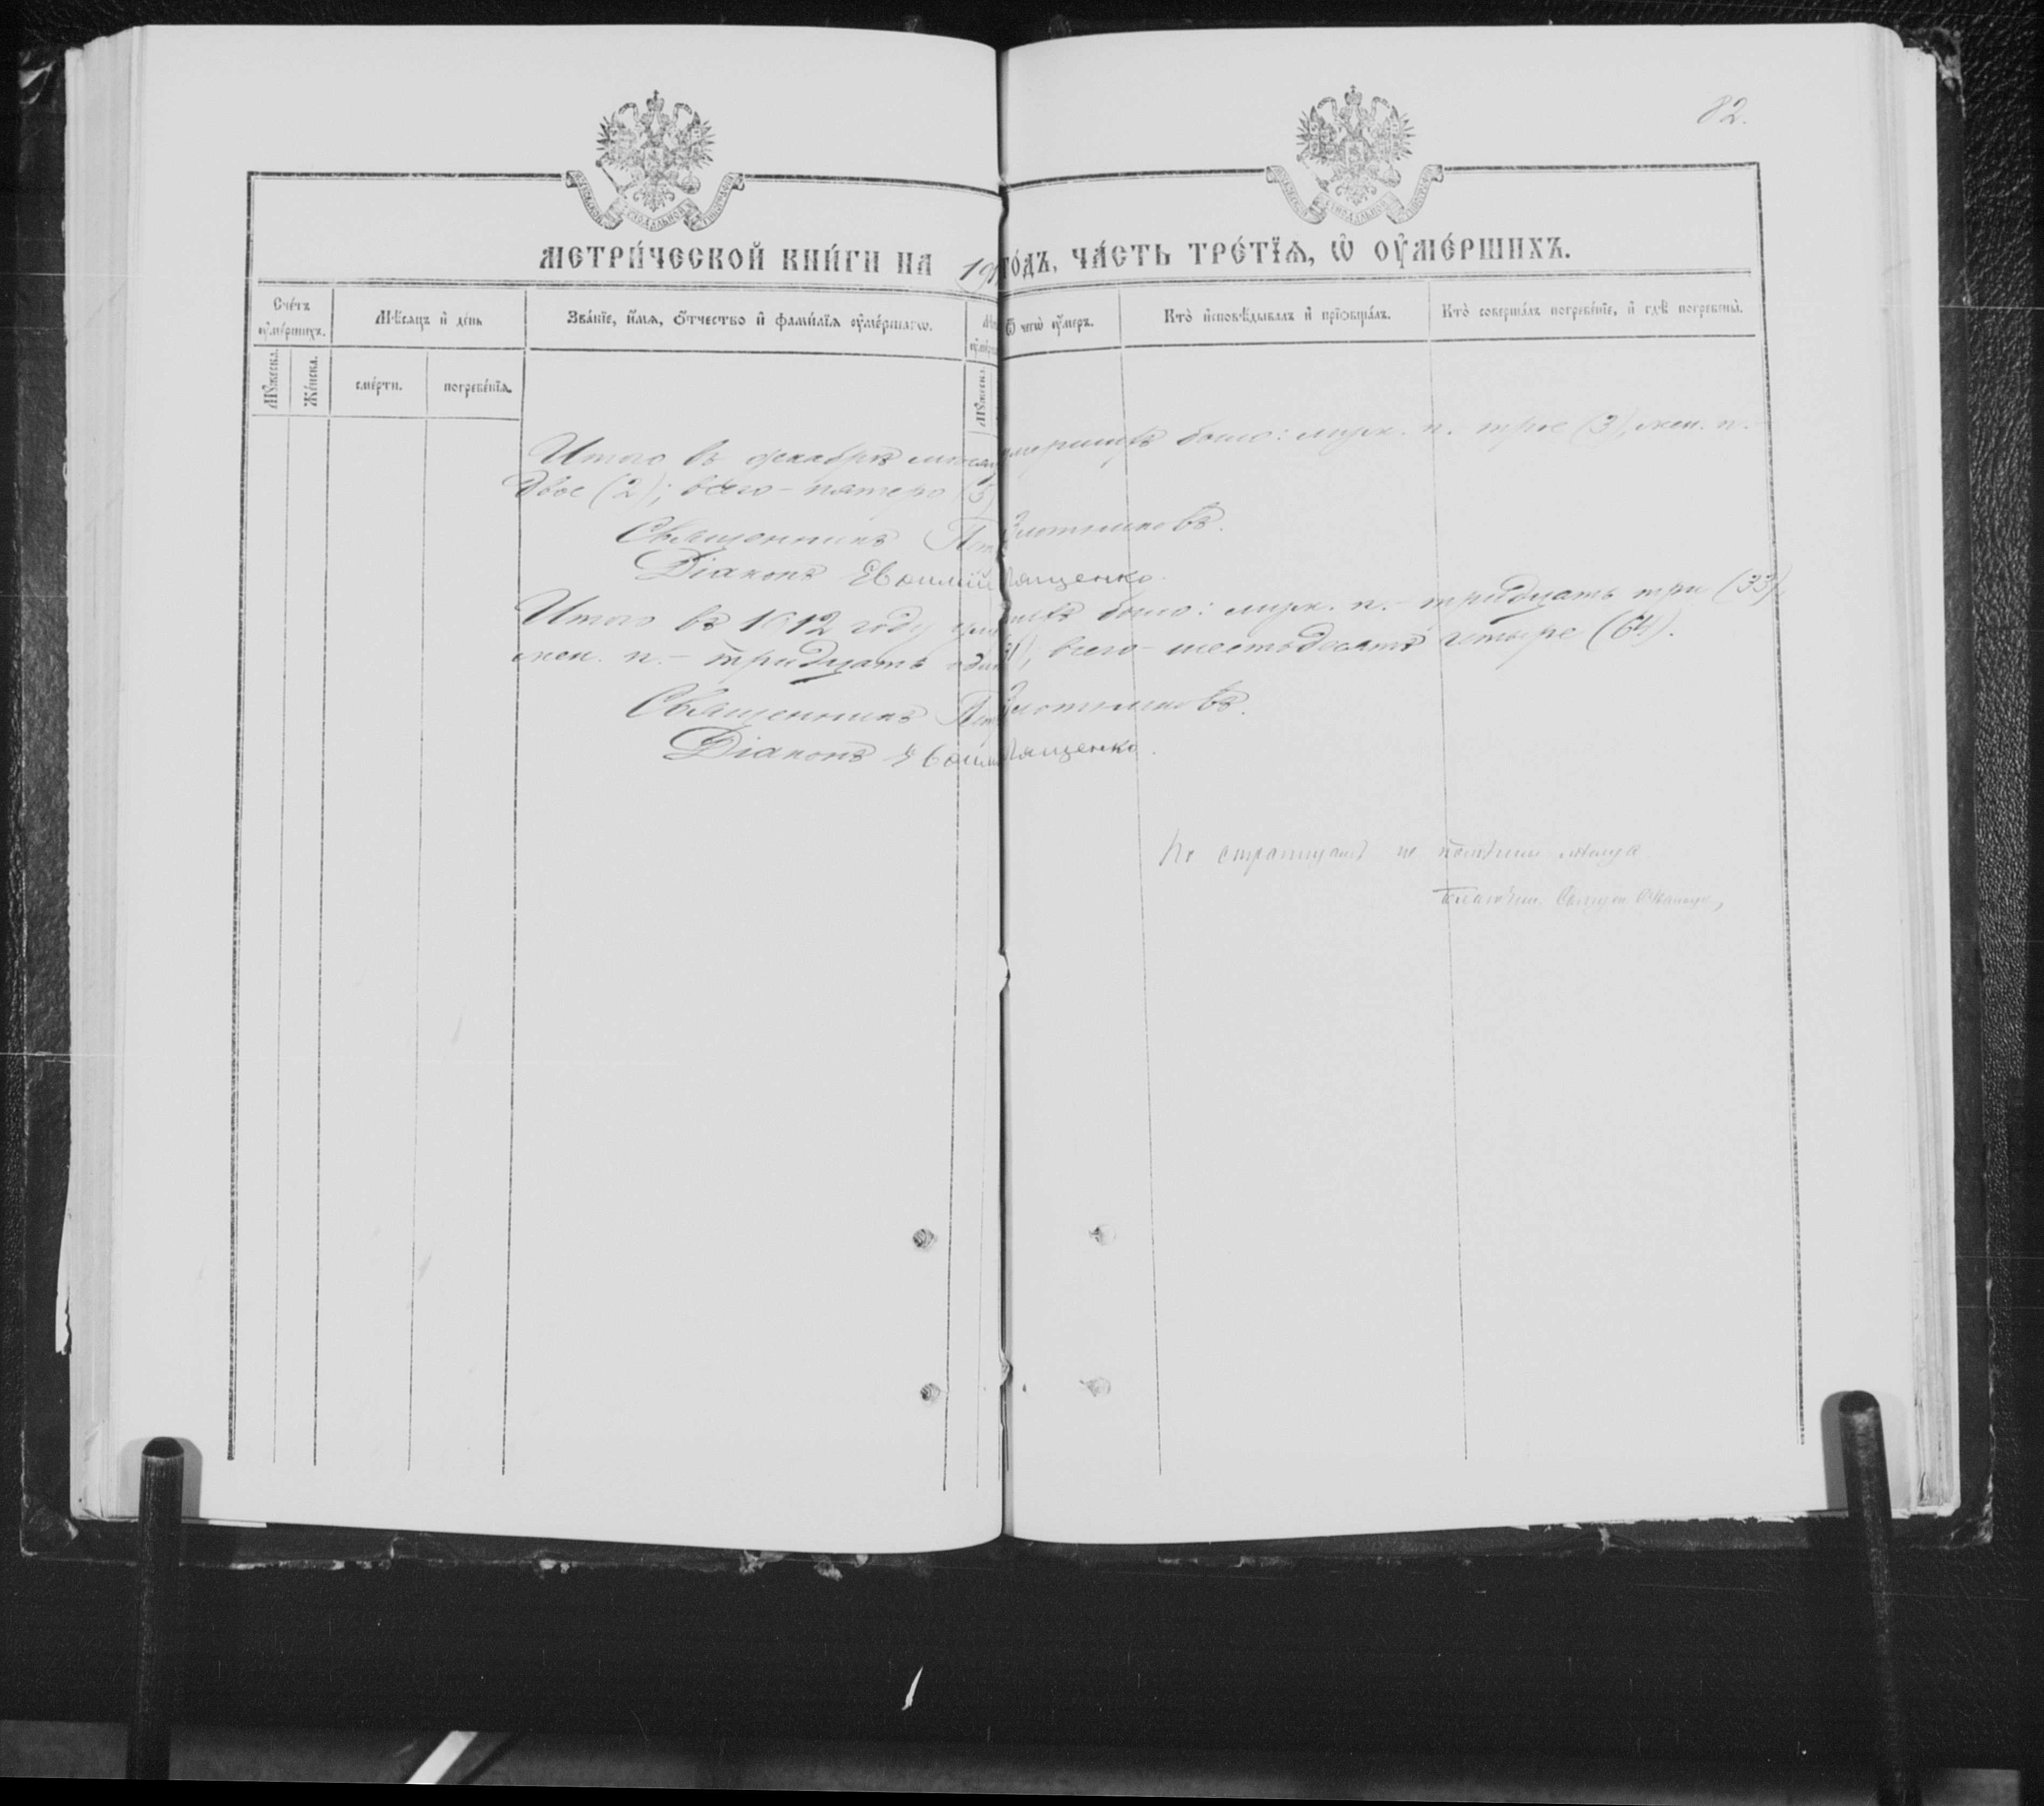 82.
МЕТРИ́ЧЕСКОЙ КНИ́ГИ НА 19 ГО́ДЪ, ЧА́СТЬ ТРЕ́ТЇѦ, Ѡ ОУ҆МЕ́РШИХЪ.
Сче́тъ оу҆ме́ршихъ.
Мѣ́сяцъ и҆ де́нь
Зва́нїе, и҆́мѧ, ѻ҆́тчество и҆ фами́лїѧ оу҆ме́ршагѡ.
Ѿ чегѡ̀ оу҆́меръ.
Кто̀ и҆сповѣ́дывалъ и҆ прїѻбща́лъ.
Кто̀ соверша́лъ погребе́нїе, и҆ гдѣ̀ погребены̀.
Мꙋ́жеска.
Же́нска.
сме́рти.
погребе́нїѧ.
Мꙋ́жеска.
Итого въ декабрѣ мѣсяц умершихъ было: муж. п. трое (3), жен. п. -
двое (2); всего - пятеро (5)
Священникъ Плотниковъ.
Діаконъ Евѳимій Лященко.
Итого въ 1912 году было: муж. п. - тридцать три (33),
жен. п. - тридцать одна ; всего - шестьдесятъ четыре (64).
Священникъ Плотниковъ.
Діаконъ Евѳим Лященко.